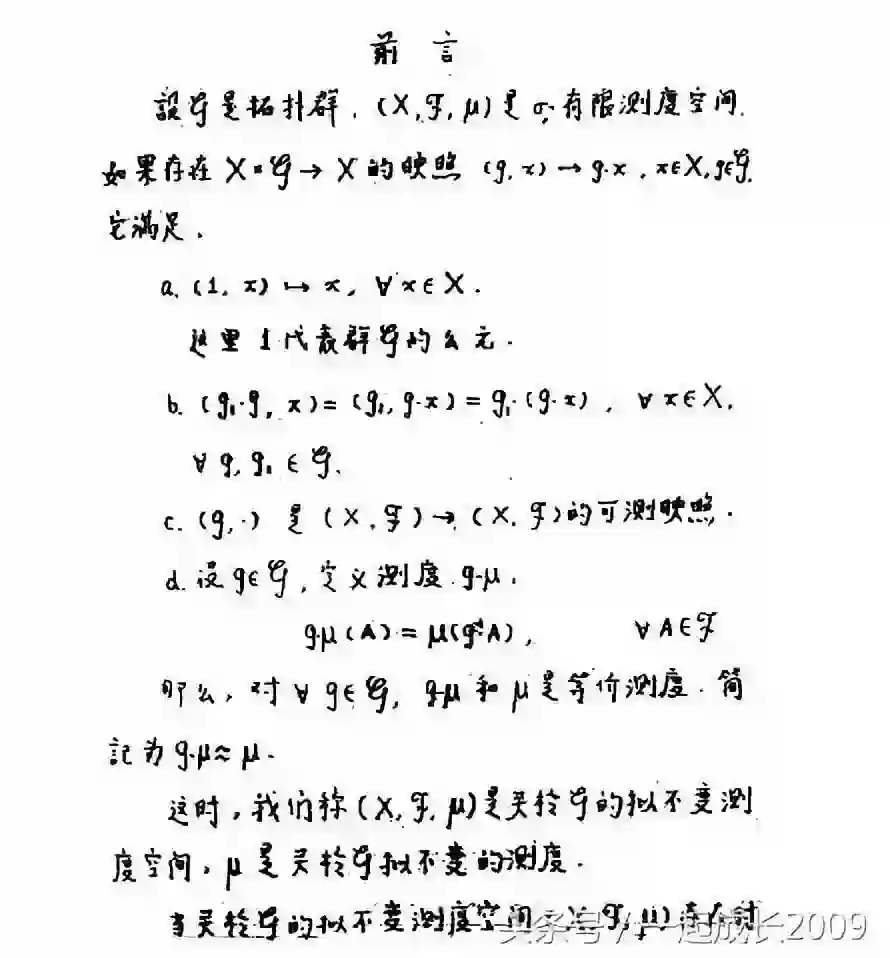 前 言
設𝒢是拓扑群. (X, ℱ, μ) 是 σ-有限测度空间.
如果存在 X × 𝒢 → X 的映照 (g, x) → g·x, x∈X, g∈𝒢,
它滿足.
a. (1, x) ↦ x, ∀ x ∈ X.
这里 1 代表群𝒢的么元.
b. (g₁·g, x) = (g₁, g·x) = g₁·(g·x), ∀ x∈X,
∀ g, g₁ ∈ 𝒢.
c. (g, ·) 是 (X, ℱ) → (X, ℱ) 的可测映照.
d. 设 g∈𝒢, 定义测度 g·μ.
g·μ(A) = μ(g⁻¹A), ∀ A∈ℱ
那么, 对 ∀ g∈𝒢, g·μ 和 μ 是等价测度. 简
記为 g·μ ≈ μ.
这时, 我们称 (X, ℱ, μ) 是关於𝒢的拟不变测
度空间, μ 是关於𝒢拟不变的测度.
当关於𝒢的拟不变测度空间 (X, ℱ, μ) 存在时
头条号 / 一起成长2009